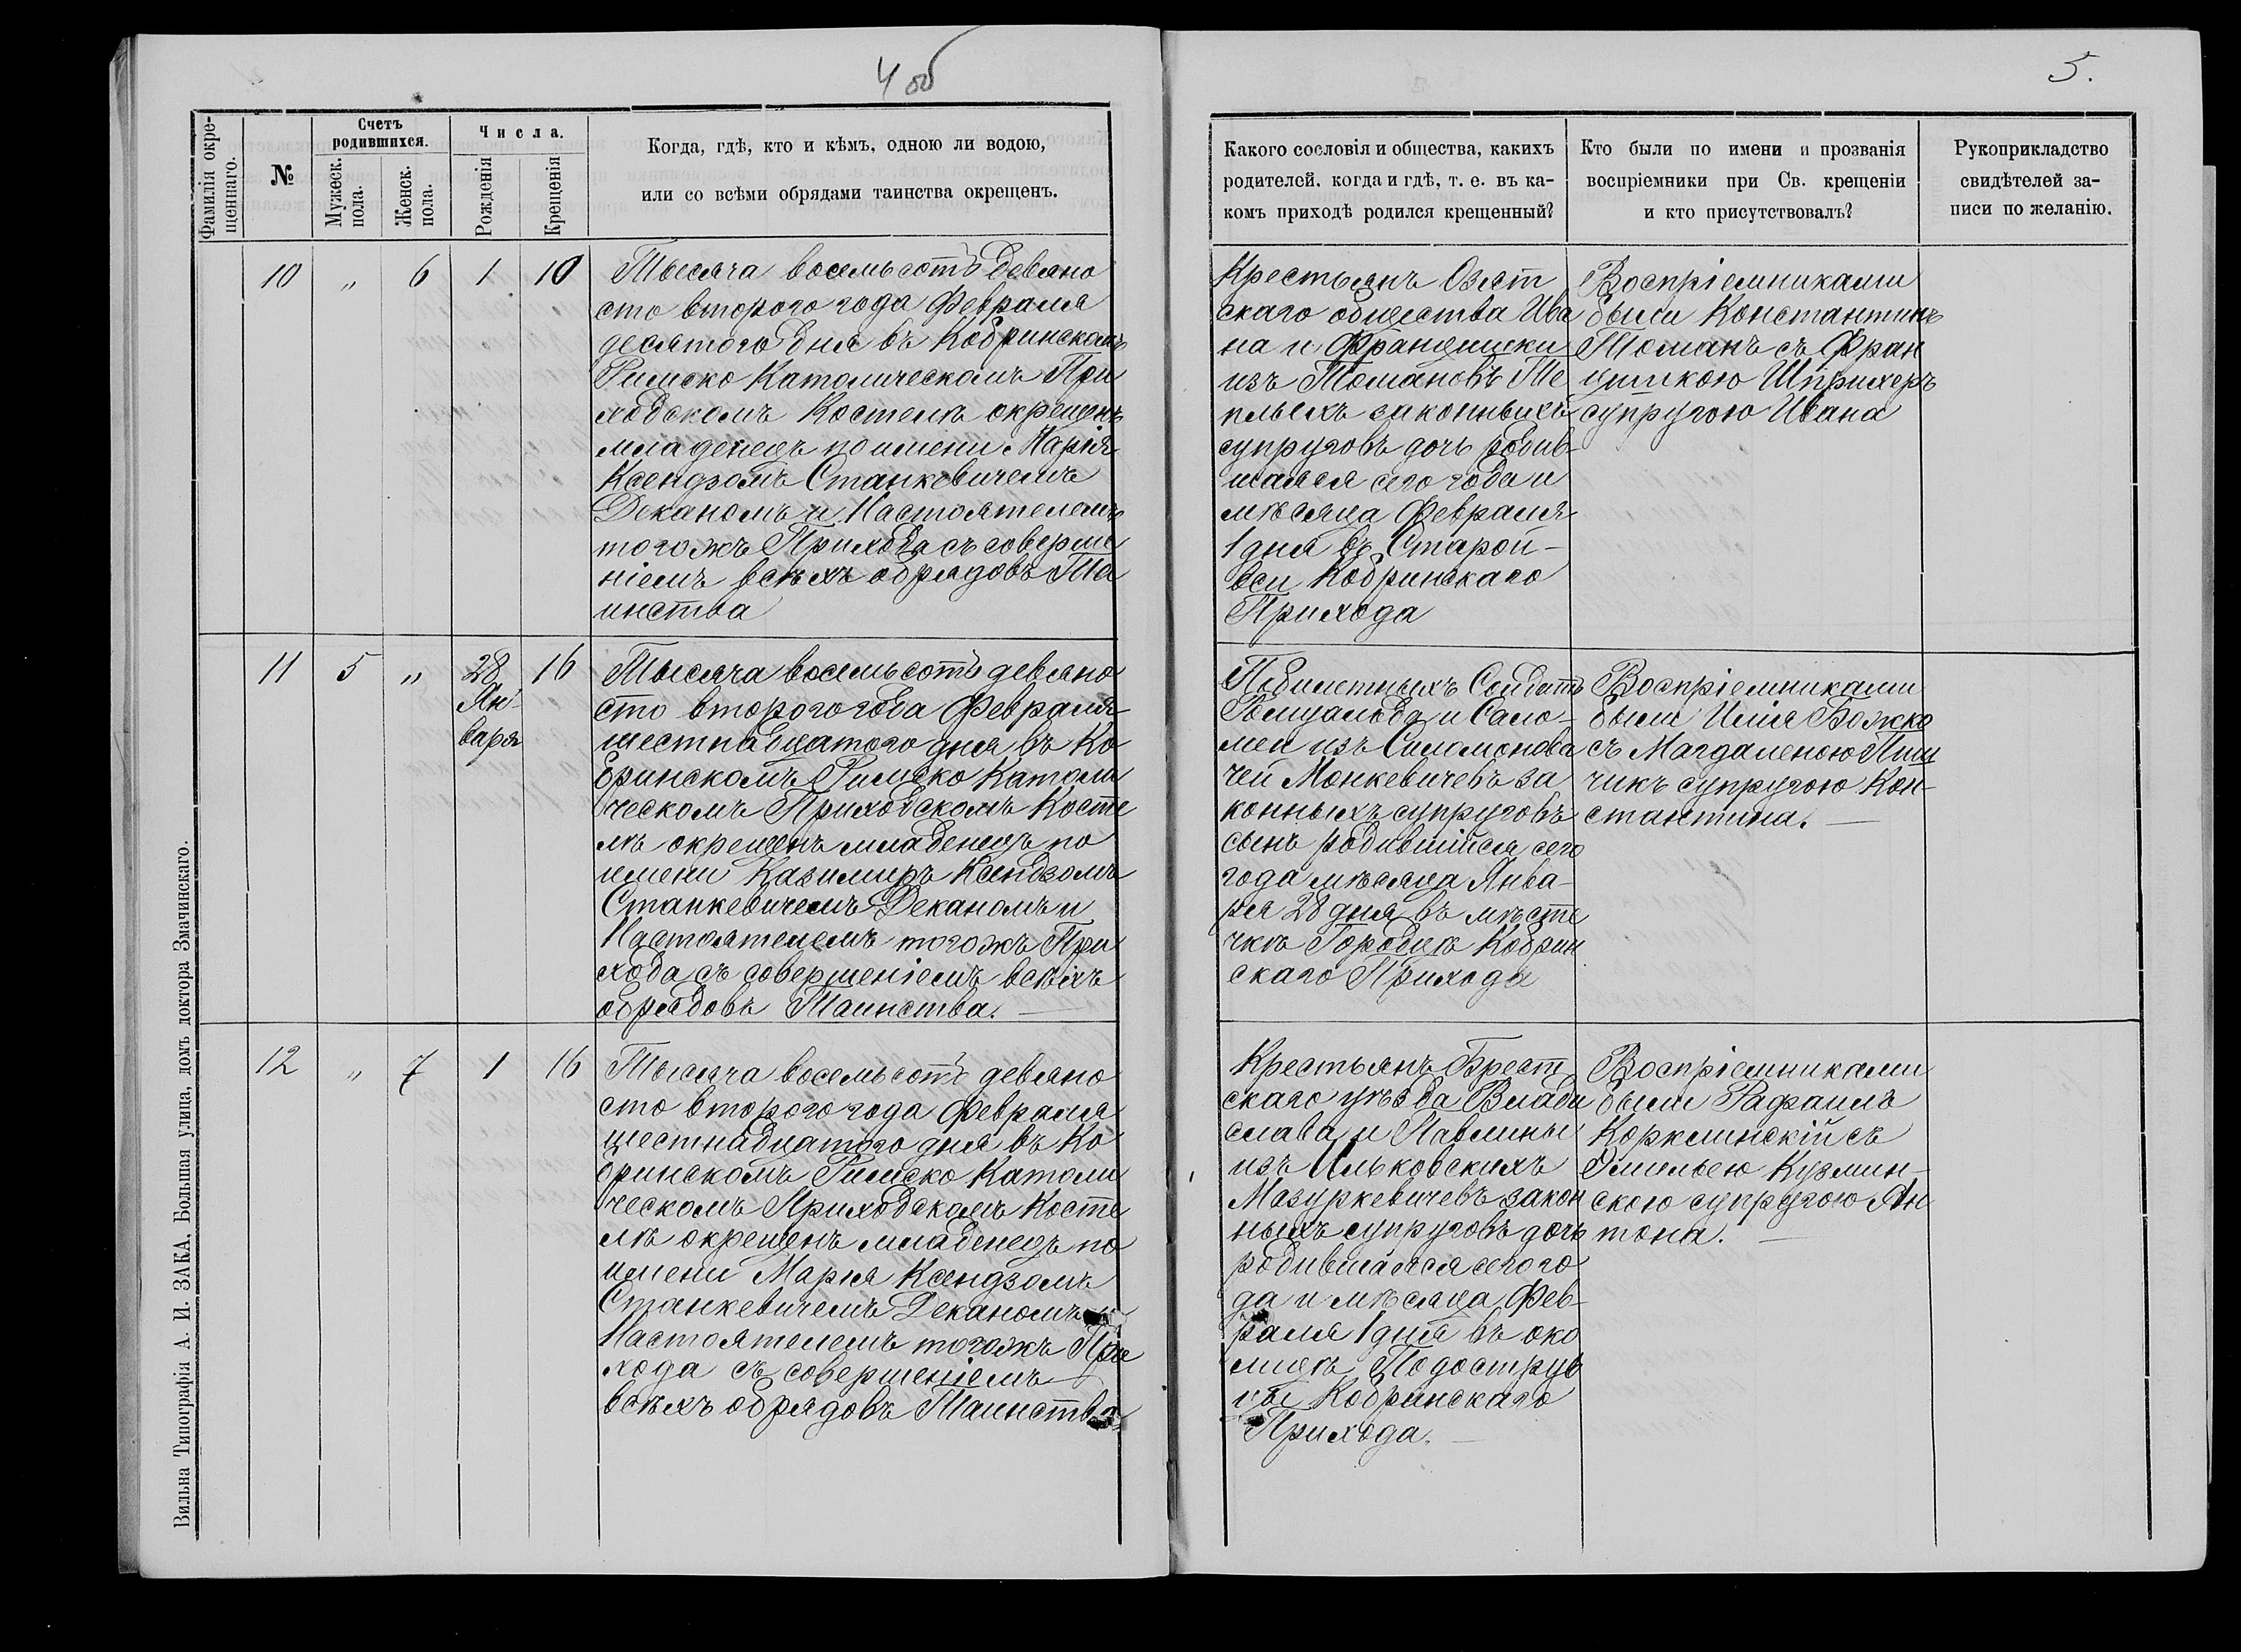 4 об
5.
Фамилія окре-
щеннаго.
№
Счетъ
родившихся.
Мужеск.
пола.
Женск.
пола.
Числа.
Рожденія
Крещенія
Когда, гдѣ, кто и кѣмъ, одною ли водою,
или со всѣми обрядами таинства окрещенъ.
Какого сословія и общества, какихъ
родителей, когда и гдѣ, т. е. въ ка-
комъ приходѣ родился крещенный?
Кто были по имени и прозванія
воспріемники при Св. крещеніи
и кто присутствовалъ?
Рукоприкладство
свидѣтелей за-
писи по желанію.
10 " 6 1 10
Тысяча восемьсотъ девяно
сто второго года Февраля
десятого дня въ Кобринскомъ
Римско Католическомъ При
ходскомъ Костелѣ окрещенъ
младенецъ по имени Марія
Ксендзомъ Станкевичемъ
Деканомъ и Настоятелемъ
тогожъ Прихода съ соверше
ніемъ всѣхъ обрядовъ Та
инства
Крестьянъ Озят
скаго общества Ива
на и Францишки
изъ Томановъ Те
плыхъ законныхъ
супруговъ дочь родив-
шаяся сего года и
мѣсяца Февраля
1 дня въ Старой-
вси Кобринскаго
Прихода
Воспріемниками
были Константинъ
Томанъ съ Фран
цишкою
супругою Ивана
11 5 " 28 16
Ян-
варя
Тысяча восемьсотъ девяно
сто второго года Февраля
шестнадцатого дня въ Ко
бринскомъ Римско Католи
ческомъ Приходскомъ Косте
лѣ окрещенъ младенецъ по
имени Казимиръ Ксендзомъ
Станкевичемъ Деканомъ и
Настоятелемъ тогожъ При
хода съ совершеніемъ всѣхъ
обрядовъ Таинства.
Солдатъ
Ромуальда и Сало-
меи изъ
чей Монкевичевъ за
конныхъ супруговъ
сынъ родившійся сего
года мѣсяца Янва-
ря 28 дня въ мѣсте
чкѣ Городцѣ Кобрин
скаго Прихода
Воспріемниками
были Илія Божко
съ Магдаленою
чикъ супругою Кон-
стантина.
12 " 7 1 16
Тысяча восемьсотъ девяно
сто второго года Февраля
шестнадцатого дня въ Ко
бринскомъ Римско Католи
ческомъ Приходскомъ Косте
лѣ окрещенъ младенецъ по
имени Марія Ксендзомъ
Станкевичемъ Деканомъ и
Настоятелемъ тогожъ При
хода съ совершеніемъ
всѣхъ обрядовъ Таинства
Крестьянъ Брест
скаго уѣзда Влади
слава и Павлины
изъ Ильковскихъ
Мазуркевичевъ закон
ныхъ супруговъ дочь
родившаяся сего го
да и мѣсяца Фев-
раля 1 дня въ око
лицѣ
Кобринскаго
Прихода.
Воспріемниками
были Рафаилъ
съ
Эмильею Кузмин-
скою супругою Ан
тона.
Вильна Типографія А. И. ЗАКА, Большая улица, домъ доктора Змачинскаго.